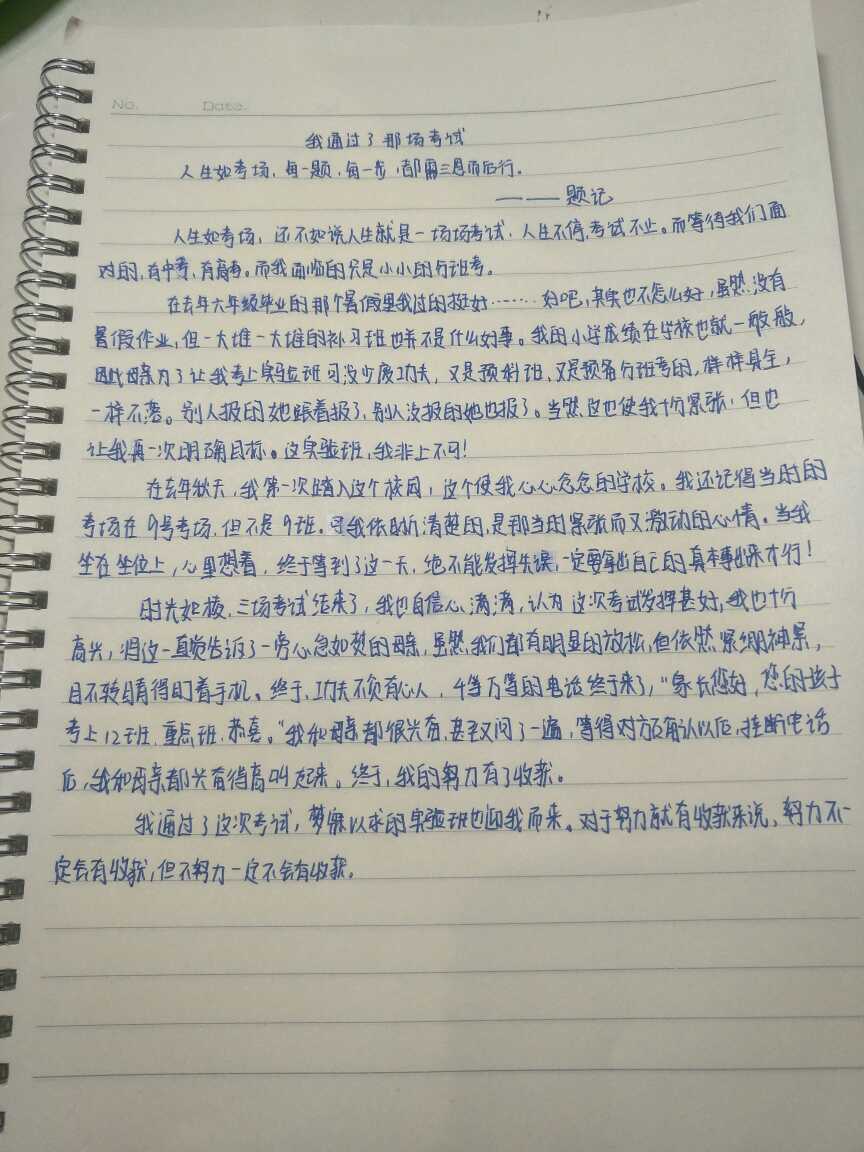 No. Date.
我通过了那场考试
人生如考场，每一题，每一步，都需三思而后行。
———题记
人生如考场，还不如说人生就是一场场考试，人生不停，考试不止。而等待我们面
对的，有中考，有高考。而我面临的只是小小的分班考。
在去年六年级毕业的那个暑假里我过的挺好……好吧，其实也不怎么好，虽然没有
暑假作业，但一大堆一大堆的补习班也并不是什么好事。我的小学成绩在学校也就一般般，
因此母亲为了让我考上实验班可没少废功夫，又是预科班，又是预备分班考的，样样具全，
一样不落。别人报的她跟着报了，别人没报的她也报了。当然这也使我十份紧张，但也
让我再一次明确目标。这实验班，我非上不可！
在去年秋天，我第一次踏入这个校园，这个使我心心念念的学校。我还记得当时的
考场在9号考场，但不是9班。我依旧清楚的，是那当时紧张而又激动的心情。当我
坐在坐位上，心里想着，终于等到了这一天，绝不能发挥失误，一定要拿出自己的真本事出来才行！
时光如梭，三场考试结束了，我也自信心满满，认为这次考试发挥甚好，我也十份
高兴，将这一直觉告诉了一旁心急如焚的母亲，虽然我们都有明显的放松，但依然紧绷神经，
目不转睛得盯着手机。终于，功夫不负有心人，千等万等的电话终于来了，“家长您好，您的孩子
考上12班，重点班，恭喜。”我和母亲都很兴奋，甚至又问了一遍，等得对方确认以后，挂断电话
后，我和母亲都兴奋得高叫起来。终于，我的努力有了收获。
我通过了这次考试，梦寐以求的实验班也迎我而来。对于努力就有收获来说，努力不一
定会有收获，但不努力一定不会有收获。